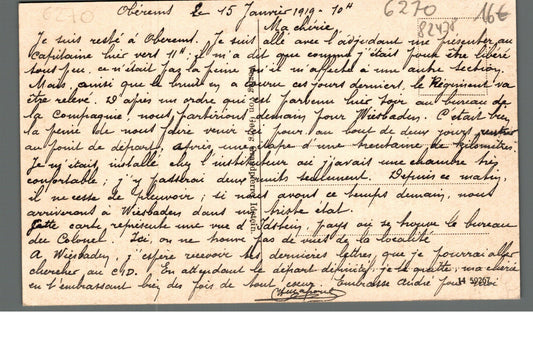 6270 6270 16€
82478
Obérems le 15 Janvier 1919 - 10H
Ma chérie,
Je suis resté à Oberems. Je suis allé avec l'adjudant me présenter au
Capitaine hier vers 11H. il m'a dit que comme j'étais pour être libéré
sous peu, ce n'était pas la peine qu'il m'affecte à une autre section.
Mais, ainsi que le bruit en a couru ces jours derniers, le Régiment va
être relevé. D'après un ordre qui est parvenu hier soir au bureau de
la Compagnie, nous partirions demain pour Wiesbaden. C'était bien
la peine de nous faire venir ici pour, au bout de deux jours, rentrer
au point de départ, après une étape d'une trentaine de kilomètres.
Je m'étais installé chez l'instituteur où j'avais une chambre très
confortable; j'y passerai deux nuits seulement. Depuis ce matin,
il ne cesse de pleuvoir; si nous avons ce temps demain, nous
arriverons à Wiesbaden dans un triste état.
Cette carte représente une vue d'Idstein, pays où se trouve le bureau
du Colonel. Ici, on ne trouve pas de vues de la localité
A Wiesbaden, j'espère recevoir tes dernières lettres, que je pourrai aller
chercher au C.I.D. En attendant le départ définitif, je te quitte, ma chérie
en t'embrassant bien des fois de tout cœur. Embrasse André pour moi
14 50267